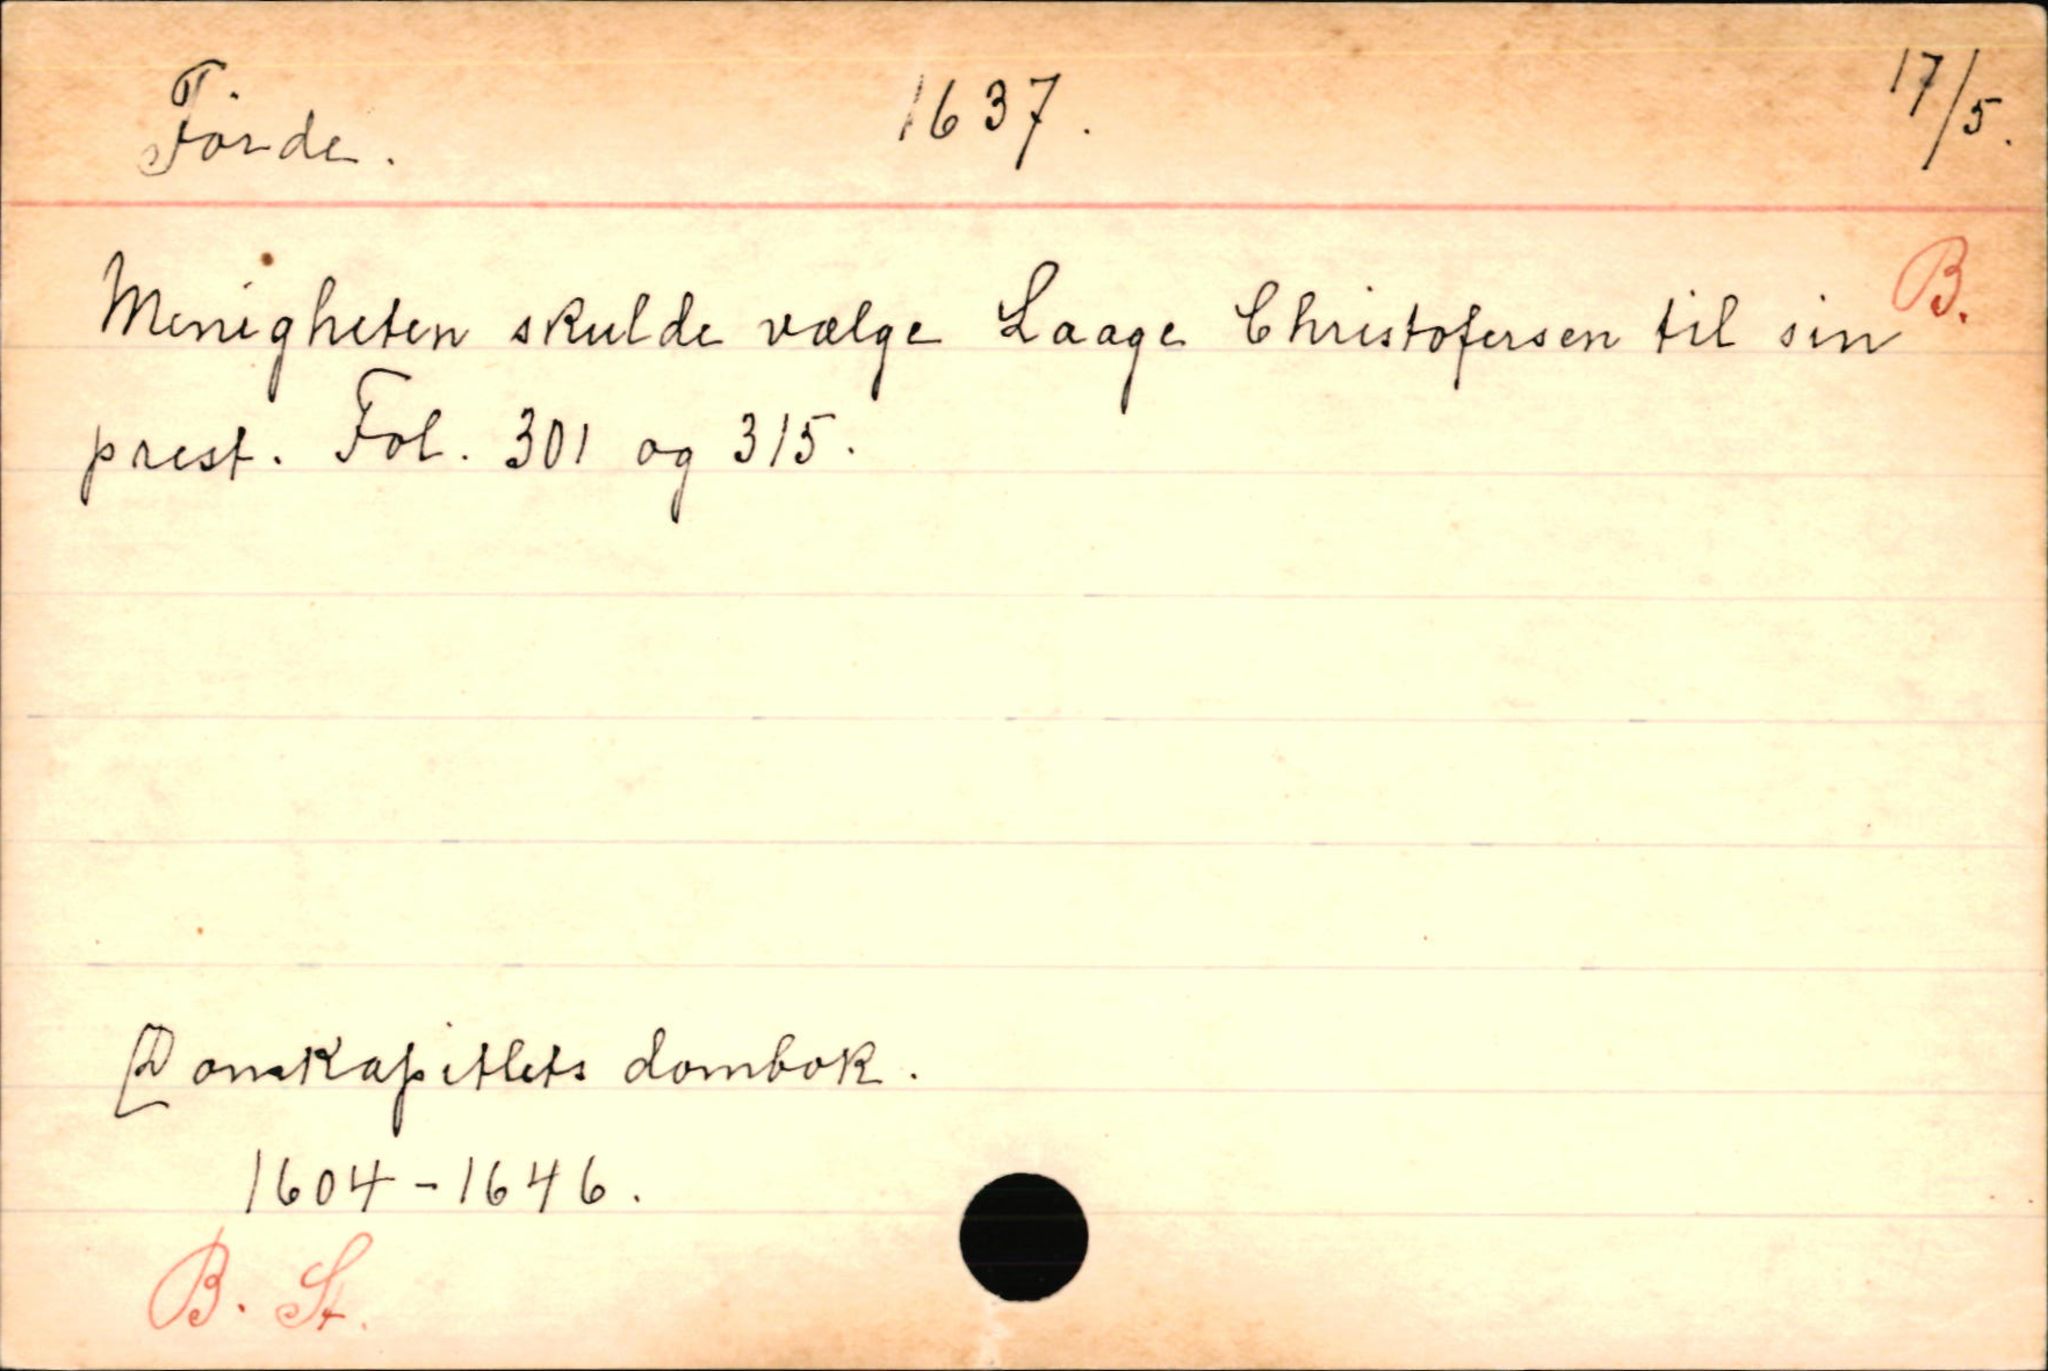 Förde. 1637. 17/5.
B.
Menigheten skulde vælge Laage Christofersen til sin
prest. Fol. 301 og 315.
Domkapitlets dombok.
1604-1646.
B. St.